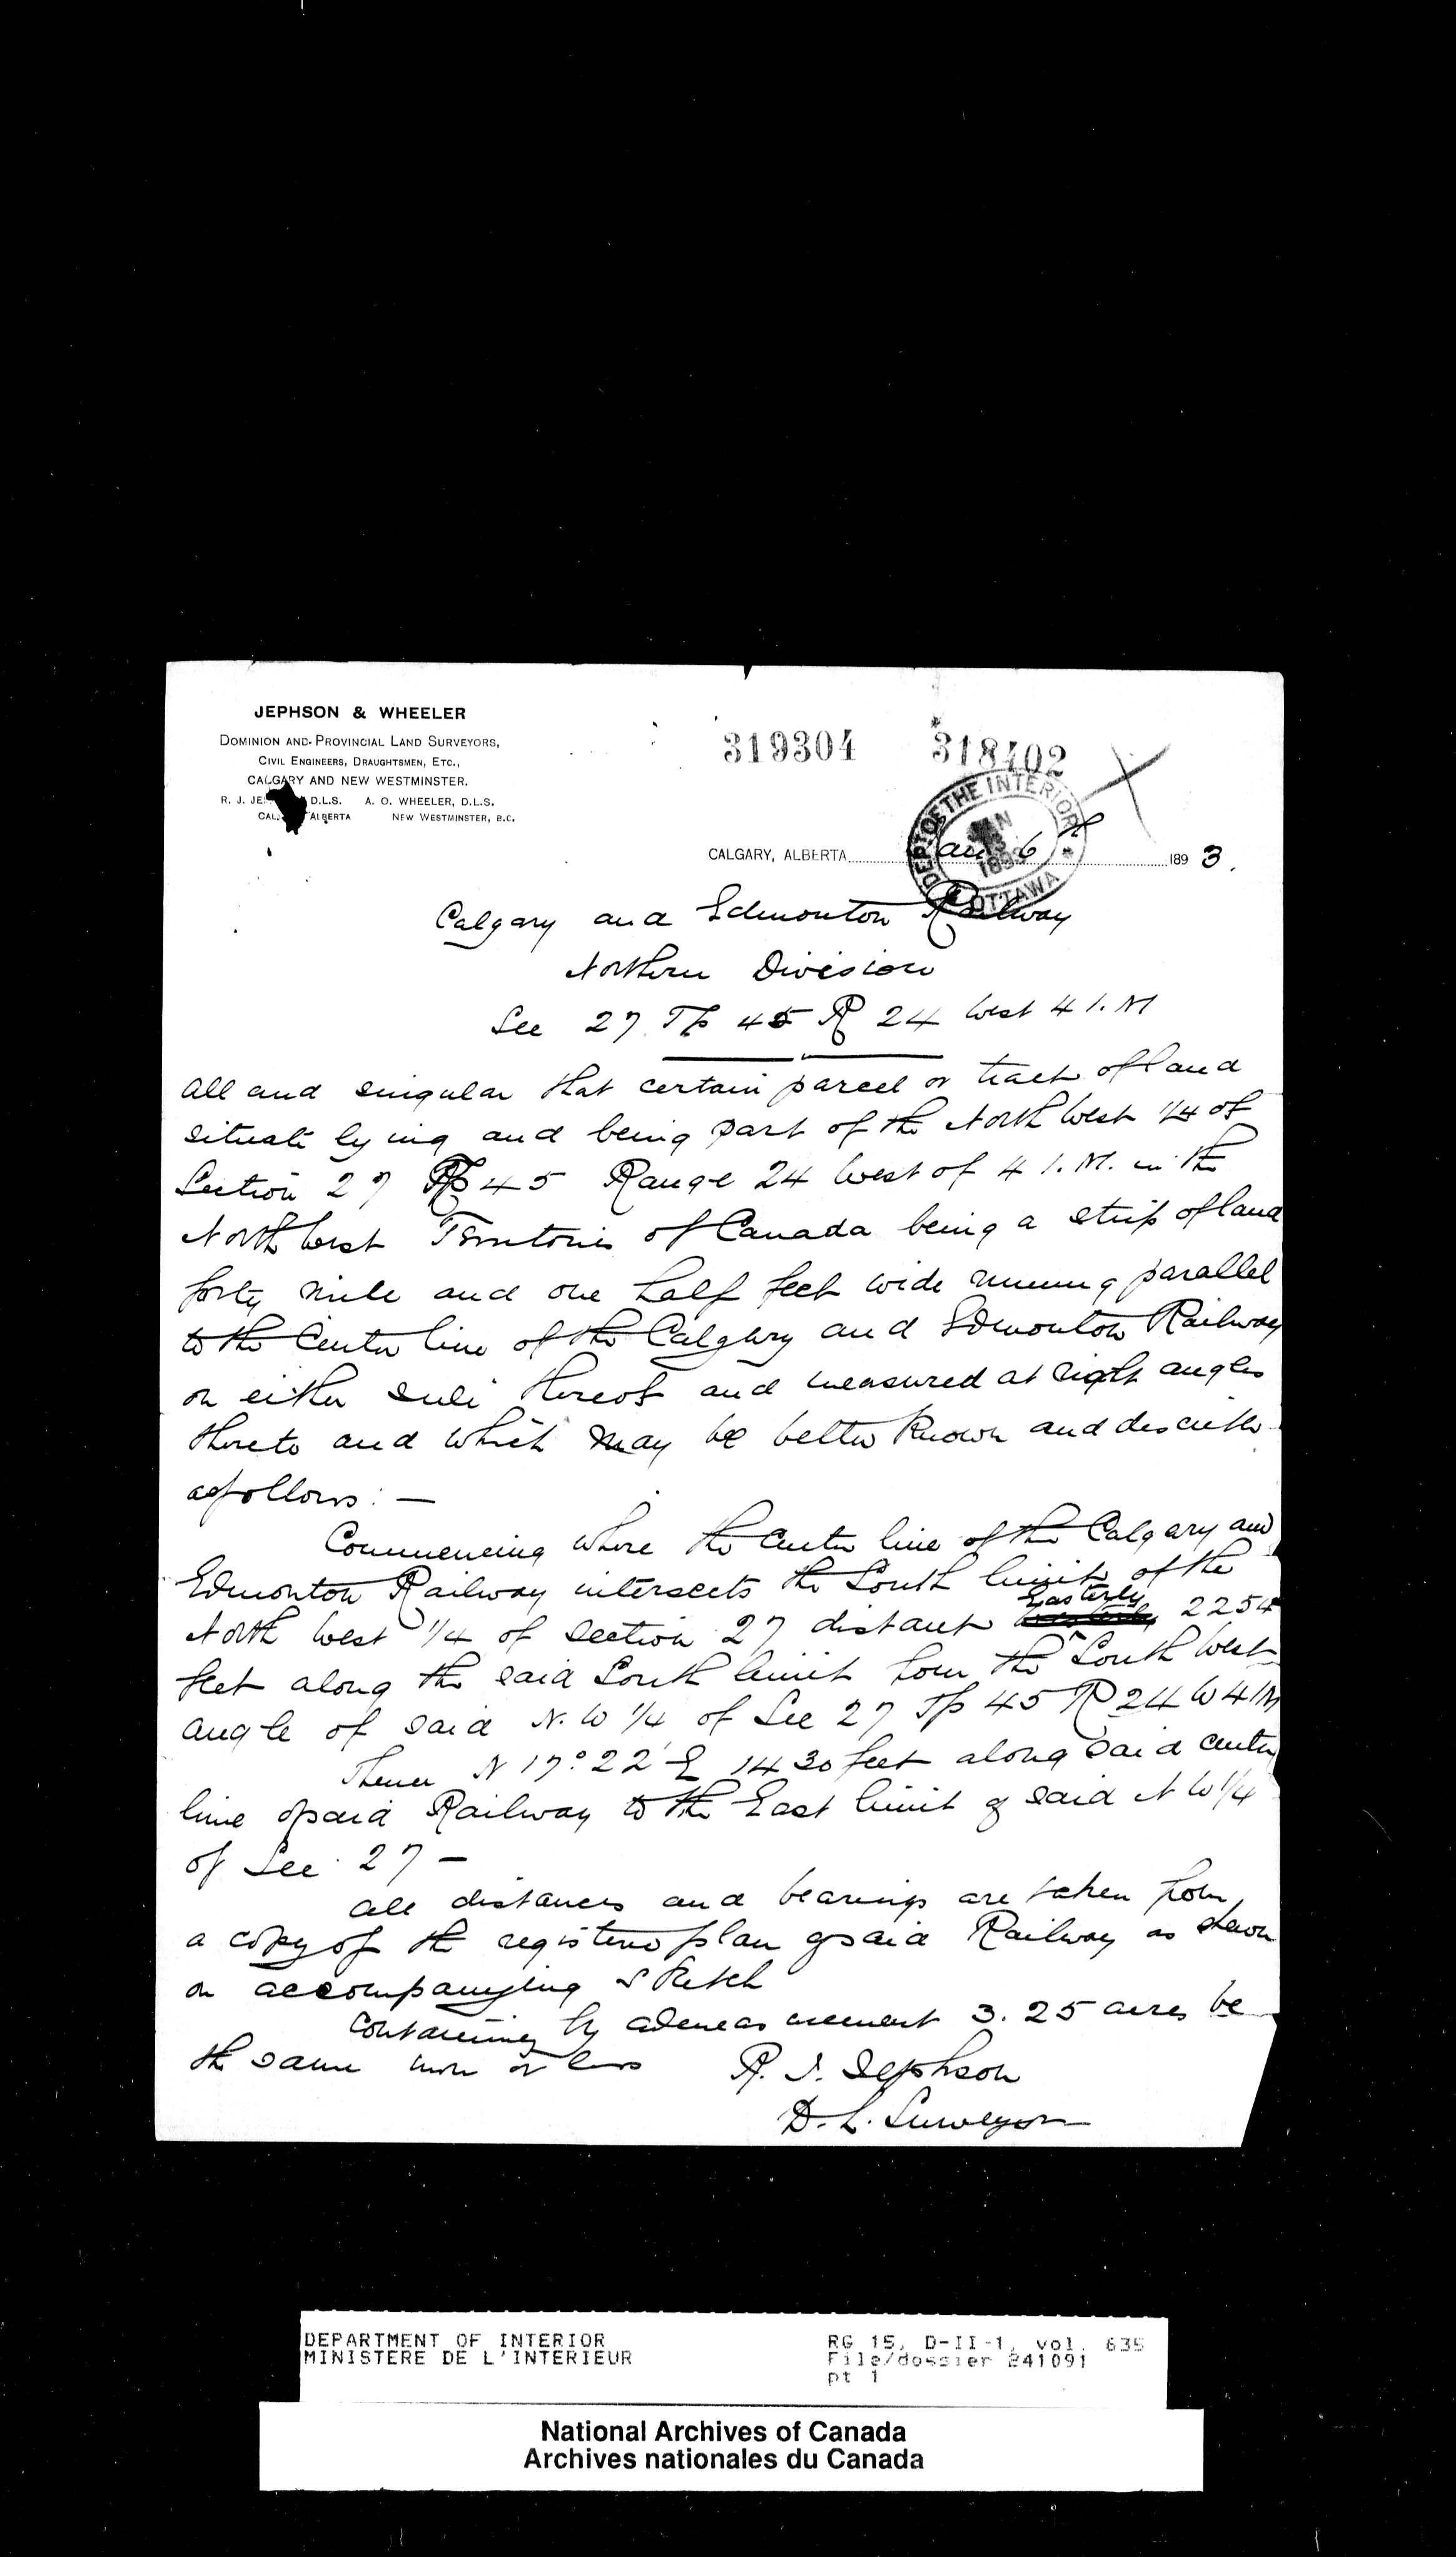 JEPHSON & WHEELER
DOMINION AND PROVINCIAL LAND SURVEYORS,
CIVIL ENGINEERS, DRAUGHTSMEN, ETC.,
CALGARY AND NEW WESTMINSTER.
R. J. JE D.L.S. A. O. WHEELER, D.L.S.
CAL ALBERTA NEW WESTMINSTER, B.C.
319304 318402
DEPT OF THE INTERIOR
JAN
OTTAWA
CALGARY, ALBERTA Jan 6th 1893.
Calgary and Edmonton Railway
Northern Division
Sec 27 Tp 45 R 24 West 4 I. M
All and singular that certain parcel or tract of land
situate lying and being part of the North West 1/4 of
Section 27 Tp 45 Range 24 West of 4 I. M. in the
North West Territories of Canada being a strip of land
forty nine and one half feet wide running parallel
to the Center line of the Calgary and Edmonton Railway
on either side thereof and measured at right angles
thereto and which may be better known and described
as follows: —
Commencing where the Center line of the Calgary and
Edmonton Railway intersects the South limit of the
North West 1/4 of Section 27 distant Easterly 2254
feet along the said South limit from the South West
angle of said N. W 1/4 of Sec 27 Tp 45 R 24 W 4 I M
Thence N 17° 22' E 1430 feet along said center
line of said Railway to the East limit of said N W 1/4
of Sec 27 —
All distances and bearings are taken from
a copy of the registered plan of said Railway as shown
on accompanying sketch
Containing by admeasurement 3.25 acres be
the same more or less R. J. Jephson
D. L. Surveyor
DEPARTMENT OF INTERIOR RG 15, D-II-1, vol. 635
MINISTERE DE L'INTERIEUR File/dossier 241091
pt 1
National Archives of Canada
Archives nationales du Canada